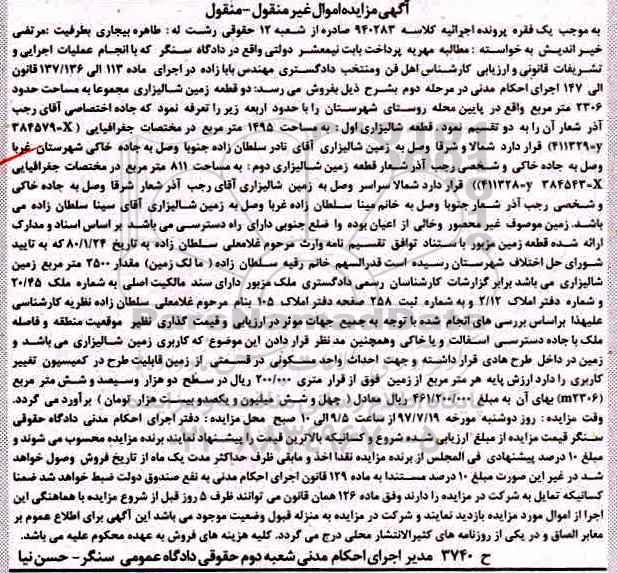 آگهی مزایده اموال غیر منقول - منقول
به موجب یک فقره پرونده اجرائیه کلاسه ۹۴۰۲۸۳ صادره از شعبه ۱۲ حقوقی رشت له : طاهره بیجاری بطرفیت :مرتضی
خیر اندیش به خواسته : مطالبه مهریه پرداخت بابت نیمعشر دولتی واقع در دادگاه سنگر که با انجام عملیات اجرایی و
تشریفات قانونی و ارزیابی کارشناس اهل فن ومنتخب دادگستری مهندس بابا زاده در اجرای ماده ۱۱۳ الی ۱۳۷/۱۳۶ قانون
الی ۱۴۷ اجرای احکام مدنی در مرحله دوم بشرح ذیل بفروش می رسد: دو قطعه زمین شالیزاری مجموعا به مساحت حدود
۲۳۰۶ متر مربع واقع در پایین محله روستای شهرستان را با حدود اربعه زیر را تعرفه نمود که جاده اختصاصی آقای رجب
آذر شعار آن را به دو تقسیم نمود. قطعه شالیزاری اول : به مساحت ۱۴۹۵ متر مربع در مختصات جغرافیایی ( X-۳۸۴۵۷۹
y-۴۱۱۳۲۹) قرار دارد شمالا و شرقا وصل به زمین شالیزاری آقای نادر سلطان زاده جنوبا وصل به جاده خاکی شهرستان غربا
وصل به جاده خاکی و شخصی رجب آذر شعار قطعه زمین شالیزاری دوم : به مساحت ۸۱۱ متر مربع در مختصات جغرافیایی
X-۳۸۴۵۶۳ y-۴۱۱۳۲۸)) قرار دارد شمالا سراسر وصل به زمین شالیزاری آقای رجب آذر شعار شرقا وصل به جاده خاکی
و شخصی رجب آذر شعار جنوبا وصل به خانم مینا سلطان زاده غربا وصل به زمین شالیزاری آقای سینا سلطان زاده می
باشد. زمین موصوف غیر محصور وخالی از اعیان بوده وا ضلع جنوبی دارای راه دسترسی می باشد بر اساس اسناد و مدارک
ارائه شده قطعه زمین مزبور با ستناد توافق تقسیم نامه وارث مرحوم غلامعلی سلطان زاده به تاریخ ۸۰/۱/۲۴ که به تایید
شورای حل اختلاف شهرستان رسیده است قدرالسهم خانم رقیه سلطان زاده ( ما لک زمین) مقدار ۲۵۰۰ متر مربع زمین
شالیزاری می باشد برابر گزارشات کارشناسان رسمی دادگستری ملک مزبور دارای سند مالکیت اصلی به شماره ملک ۲۰/۴۵
و شماره دفتر املاک ۲/۱۲ و به شماره ثبت ۲۵۸ صفحه دفتر املاک ۱۰۵ بنام مرحوم غلامعلی سلطان زاده نظریه کارشناسی
علیهذا براساس بررسی های انجام شده با توجه به جمیع جهات موثر در ارزیابی و قیمت گذاری نظیر موقعیت منطقه و فاصله
ملک با جاده دسترسی آسفالت و یا خاکی وهمچنین مد نظر قرار دادن این موضوع که کاربری زمین شالیزاری می باشد و
زمین در داخل طرح هادی قرار داشته و جهت احداث واحد مسکونی در قسمتی از زمین قابلیت طرح در کمیسیون تغییر
کاربری را دارد ارزش پایه هر متر مربع از زمین فوق از قرار متری ۲۰۰/۰۰۰ ریال در سطح دو هزار وسیصد و شش متر مربع
(m۲۳۰۶) بهای آن به مبلغ ۴۶۱/۲۰۰/۰۰۰ ریال معادل ( چهل و شش میلیون و یکصد و بیست هزار تومان ) برآورد می گردد.
وقت مزایده : روز دوشنبه مورخه ۹۷/۷/۱۹ از ساعت ۹/۵ الی ۱۰ صبح محل مزایده : دفتر اجرای احکام مدنی دادگاه حقوقی
سنگر قیمت مزایده از مبلغ ارزیابی شده شروع و کسانیکه بالاترین قیمت را پیشنهاد نمایند برنده مزایده محسوب می شوند و
مبلغ ۱۰ درصد پیشنهادی فی المجلس از برنده مزایده نقدا اخذ و مابقی ظرف حداکثر مدت یک ماه از تاریخ فروش وصول خواهد
شد در غیر این صورت مبلغ ۱۰ درصد مستندا به ماده ۱۲۹ قانون اجرای احکام مدنی به نفع صندوق دولت ضبط خواهد شد ضمنا
کسانیکه تمایل به شرکت در مزایده را دارند وفق ماده ۱۲۶ همان قانون می توانند ظرف ۵ روز قبل از شروع مزایده با هماهنگی این
اجرا از اموال مورد مزایده بازدید نمایند و شرکت در مزایده به منزله قبول وضعیت موجود می باشد این آگهی برای اطلاع عموم بر
معابر الصاق و در یکی از روزنامه های کثیرالانتشار محلی درج می گردد. کلیه هزینه های فروش به عهده محکوم علیه می باشد.
ح ۳۷۴۰ مدیر اجرای احکام مدنی شعبه دوم حقوقی دادگاه عمومی سنگر - حسن نیا